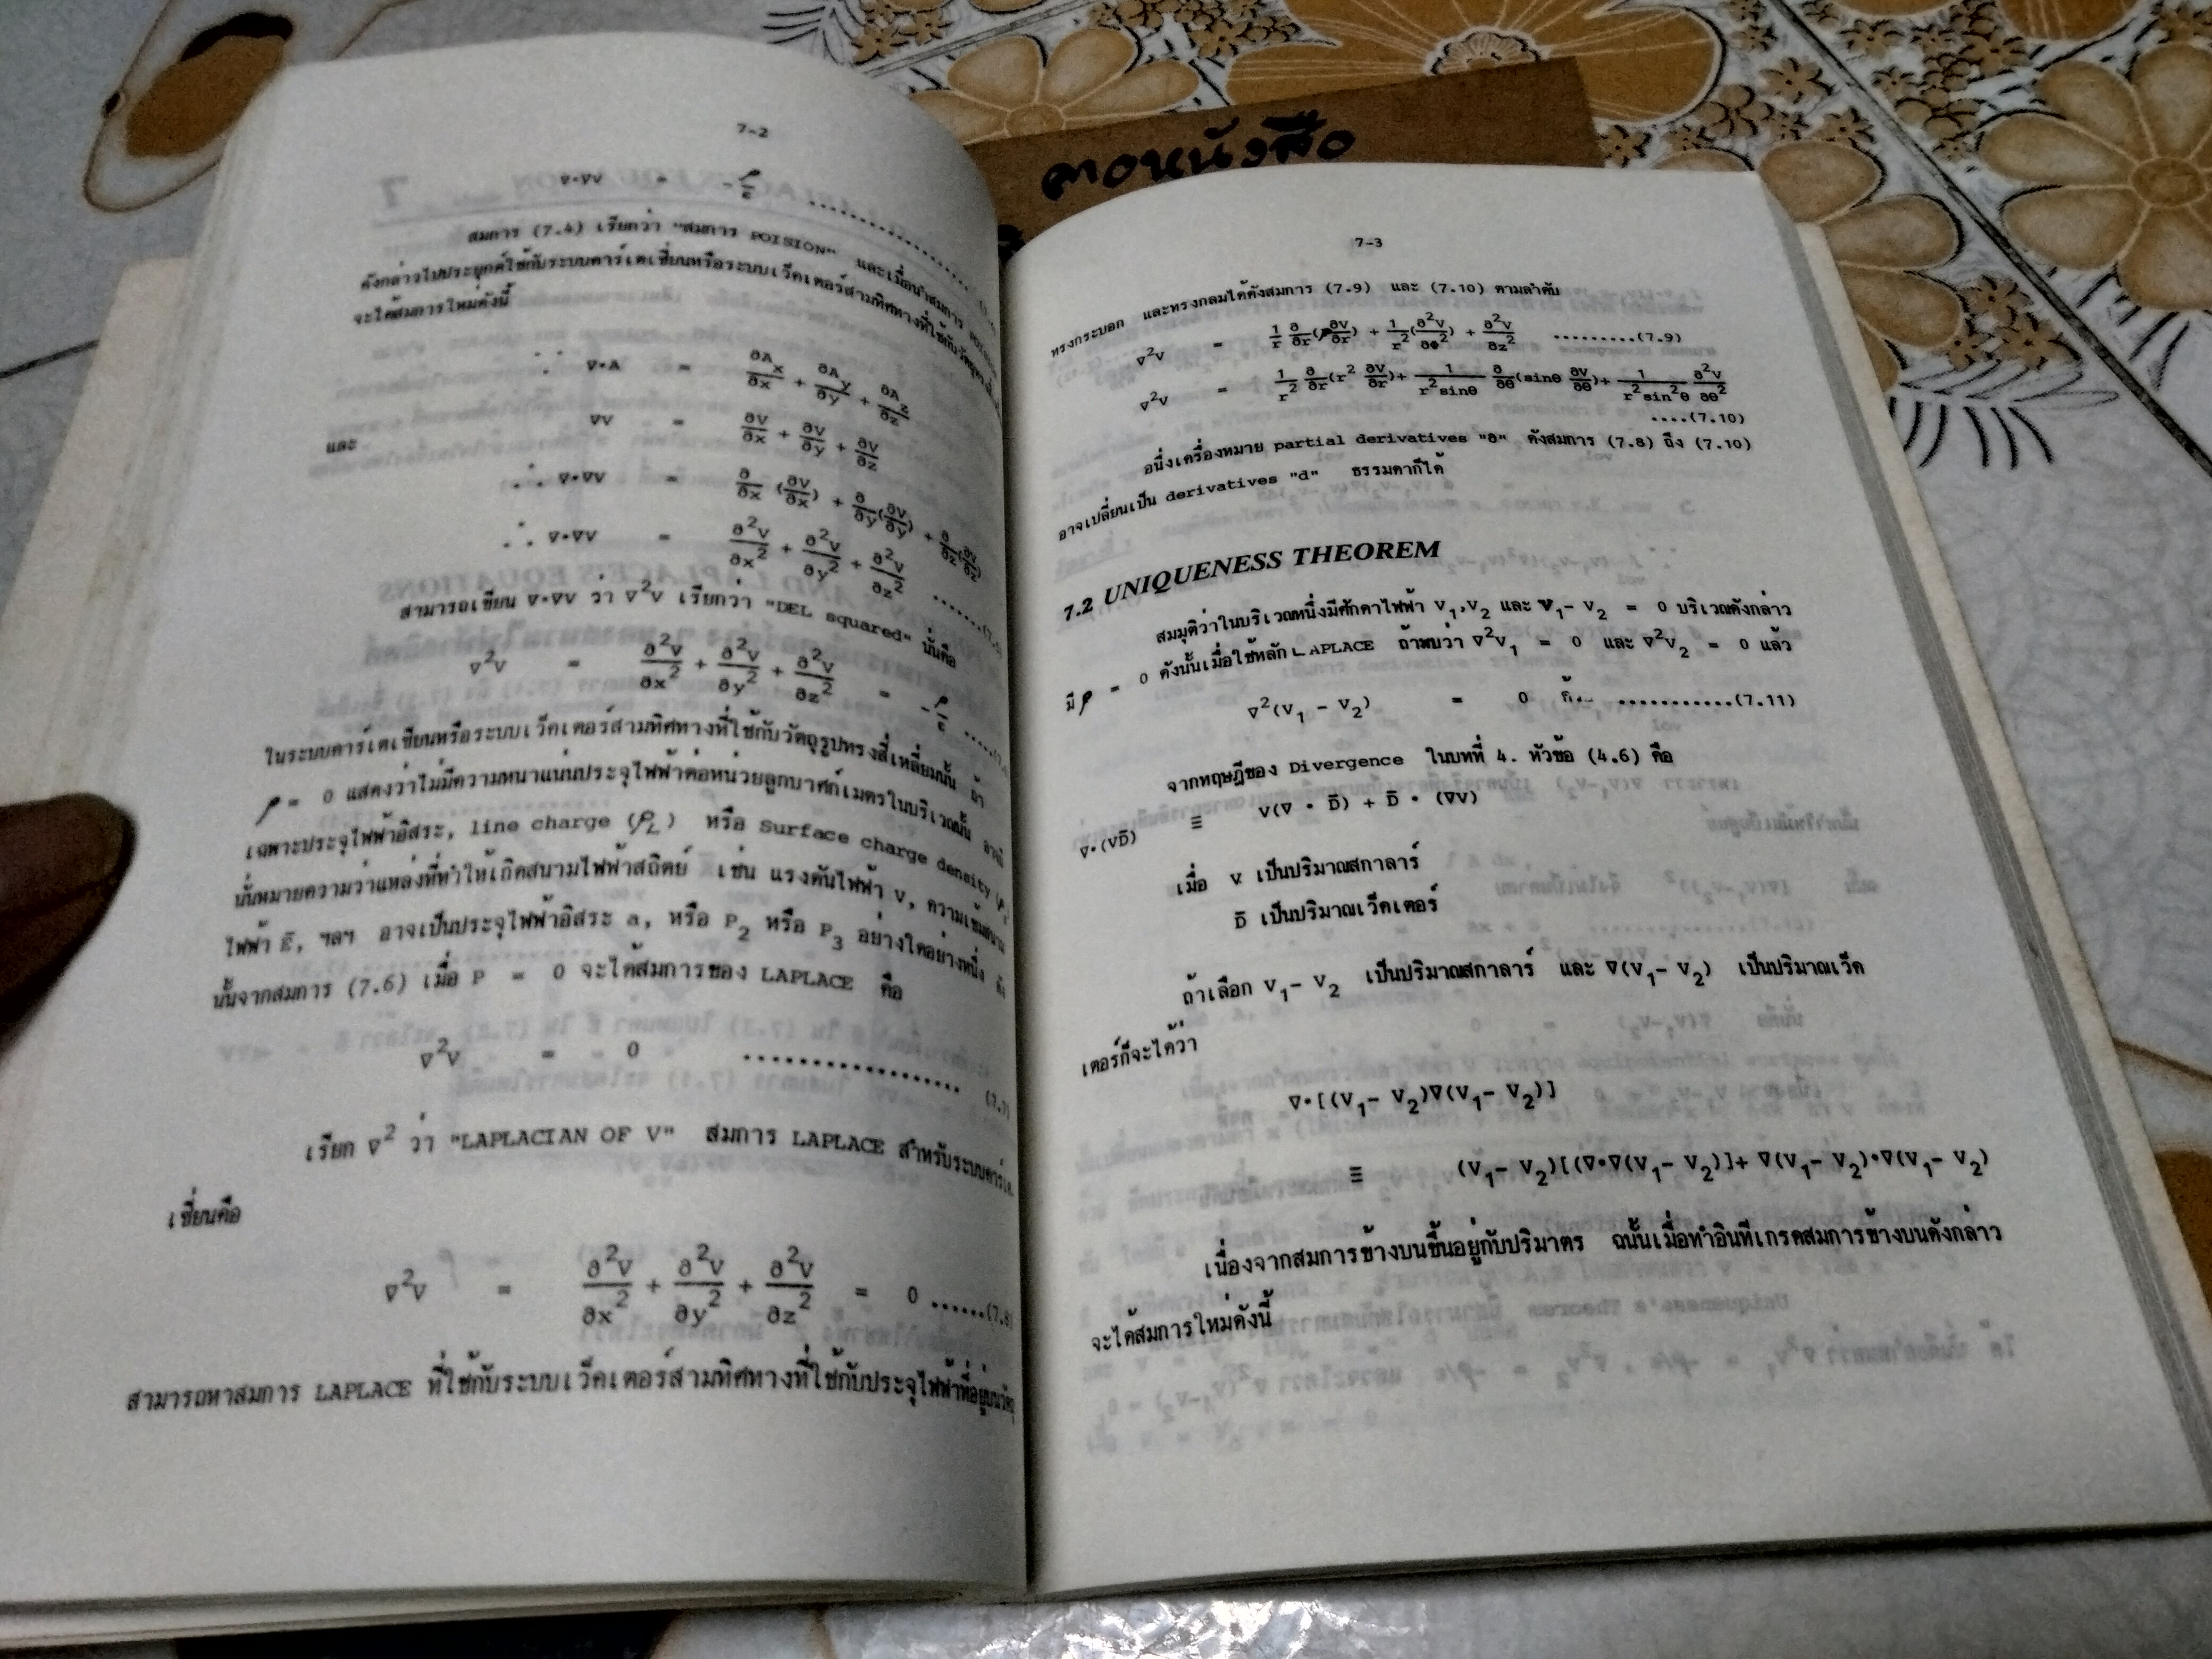 ตอหนังสือ
7-2
∇•∇V = -ρ/ε
สมการ (7.4) เรียกว่า "สมการ POISION" และเมื่อนำสมการ
ดังกล่าวไปประยุกต์ใช้กับระบบคาร์เตเซี่ยนหรือระบบเว็คเตอร์สามทิศทางที่ใช้กับวัตถุ
จะได้สมการใหม่ดังนี้
∴ ∇•A = ∂Aₓ/∂x + ∂A_y/∂y + ∂A_z/∂z
และ ∇V = ∂V/∂x + ∂V/∂y + ∂V/∂z
∴ ∇•∇V = ∂/∂x (∂V/∂x) + ∂/∂y(∂V/∂y) + ∂/∂z(∂V/∂z)
∴ ∇•∇V = ∂²V/∂x² + ∂²V/∂y² + ∂²V/∂z²
สามารถเขียน ∇•∇V ว่า ∇²V เรียกว่า "DEL squared" นั่นคือ
∇²V = ∂²V/∂x² + ∂²V/∂y² + ∂²V/∂z² = -ρ/ε
ในระบบคาร์เตเซียนหรือระบบเว็คเตอร์สามทิศทางที่ใช้กับวัตถุรูปทรงสี่เหลี่ยมนั้น ถ้า
ρ = 0 แสดงว่าไม่มีความหนาแน่นประจุไฟฟ้าต่อหน่วยลูกบาศก์เมตรในบริเวณนั้น
เฉพาะประจุไฟฟ้าอิสระ, line charge (ρL) หรือ Surface charge density
นั่นหมายความว่าแหล่งที่ทำให้เกิดสนามไฟฟ้าสถิตย์ เช่น แรงดันไฟฟ้า V, ความเข้มสนาม
ไฟฟ้า E̅, ฯลฯ อาจเป็นประจุไฟฟ้าอิสระ a, หรือ P₂ หรือ P₃ อย่างใดอย่างหนึ่ง ดัง
นั้นจากสมการ (7.6) เมื่อ P = 0 จะได้สมการของ LAPLACE คือ
∇²V = 0 .................. (7.7)
เรียก ∇² ว่า "LAPLACIAN OF V" สมการ LAPLACE สำหรับระบบคาร์เต
เซี่ยนคือ
∇²V = ∂²V/∂x² + ∂²V/∂y² + ∂²V/∂z² = 0 ......(7.8)
สามารถหาสมการ LAPLACE ที่ใช้กับระบบเว็คเตอร์สามทิศทางที่ใช้กับประจุไฟฟ้าที่อยู่บนวัตถุ
7-3
ทรงกระบอก และทรงกลมได้ดังสมการ (7.9) และ (7.10) ตามลำดับ
∇²V = 1/r ∂/∂r(ρ∂V/∂r) + 1/r²(∂²V/∂Φ²) + ∂²V/∂z² .........(7.9)
∇²V = 1/r² ∂/∂r(r² ∂V/∂r)+ 1/r²sinθ ∂/∂θ(sinθ ∂V/∂θ)+ 1/r²sin²θ ∂²V/∂θ²
....(7.10)
อนึ่งเครื่องหมาย partial derivatives "∂" ดังสมการ (7.8) ถึง (7.10)
อาจเปลี่ยนเป็น derivatives "d" ธรรมดาก็ได้
7.2 UNIQUENESS THEOREM
สมมุติว่าในบริเวณหนึ่งมีศักดาไฟฟ้า V₁,V₂ และ V₁- V₂ = 0 บริเวณดังกล่าว
มี ρ = 0 ดังนั้นเมื่อใช้หลัก LAPLACE ถ้าพบว่า ∇²V₁ = 0 และ ∇²V₂ = 0 แล้ว
∇²(V₁ - V₂) = 0 ............(7.11)
จากทฤษฎีของ Divergence ในบทที่ 4. หัวข้อ (4.6) คือ
∇•(VD̅) ≡ V(∇ • D̅) + D̅ • (∇V)
เมื่อ V เป็นปริมาณสกาลาร์
D̅ เป็นปริมาณเว็คเตอร์
ถ้าเลือก V₁- V₂ เป็นปริมาณสกาลาร์ และ ∇(V₁- V₂) เป็นปริมาณเว็ค
เตอร์ก็จะได้ว่า
∇•[(V₁- V₂)∇(V₁- V₂)]
≡ (V₁- V₂)[(∇•∇(V₁- V₂)]+ ∇(V₁- V₂)•∇(V₁- V₂)
เนื่องจากสมการข้างบนขึ้นอยู่กับปริมาตร ฉนั้นเมื่อทำอินทีเกรตสมการข้างบนดังกล่าว
จะได้สมการใหม่ดังนี้